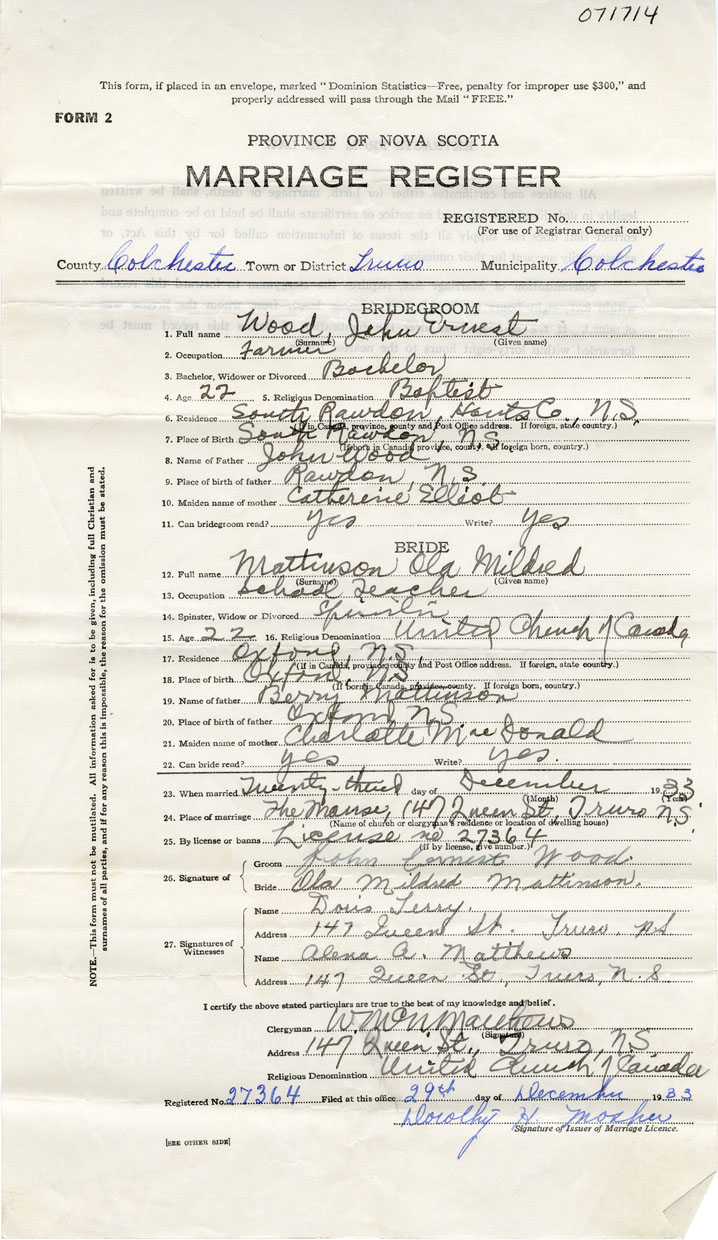 071714
This form, if placed in an envelope, marked "Dominion Statistics—Free, penalty for improper use $300," and
properly addressed will pass through the Mail "FREE."
FORM 2
PROVINCE OF NOVA SCOTIA
MARRIAGE REGISTER
REGISTERED No.
(For use of Registrar General only)
County Colchester Town or District Truro Municipality Colchester
BRIDEGROOM
1. Full name Wood, John Ernest
(Surname) (Given name)
2. Occupation Farmer
3. Bachelor, Widower or Divorced Bachelor
4. Age 22 5. Religious Denomination Baptist
6. Residence South Rawdon, Hants Co., N.S.
(If in Canada, province, county and Post Office address. If foreign, state country.)
7. Place of Birth South Rawdon, N.S.
(If born in Canada, province, county. If foreign born, country.)
8. Name of Father John Wood
9. Place of birth of father Rawdon, N.S.
10. Maiden name of mother Catherine Elliot
11. Can bridegroom read? Yes Write? Yes
BRIDE
12. Full name Mattinson Ola Mildred
(Surname) (Given name)
13. Occupation School Teacher
14. Spinster, Widow or Divorced Spinster
15. Age 22 16. Religious Denomination United Church of Canada
17. Residence Oxford, N.S.
(If in Canada, province, county and Post Office address. If foreign, state country.)
18. Place of birth Oxford, N.S.
(If born in Canada, province, county. If foreign born, country.)
19. Name of father Berry Mattinson
20. Place of birth of father Oxford N.S.
21. Maiden name of mother Charlotte MacDonald
22. Can bride read? yes Write? yes.
23. When married Twenty-third day of December 1933
(Month) (Year)
24. Place of marriage The Manse, 147 Queen St., Truro N.S.
(Name of church or clergyman's residence or location of dwelling house)
25. By license or banns License no 27364
(If by license, give number.)
26. Signature of
Groom John Ernest Wood.
Bride Ola Mildred Mattinson.
27. Signatures of Witnesses
Name Doris Terry.
Address 147 Queen St. Truro. N.S
Name Alena A. Matthews
Address 147 Queen St., Truro, N.S
I certify the above stated particulars are true to the best of my knowledge and belief.
Clergyman W. McN. Matthews
(Signature)
Address 147 Queen St., Truro, N.S
Religious Denomination United Church of Canada
Registered No. 27364 Filed at this office 29th day of December 1933
Dorothy H. Mosher
Signature of Issuer of Marriage Licence.
[SEE OTHER SIDE]
NOTE.—This form must not be mutilated. All information asked for is to be given, including full Christian and
surnames of all parties, and if for any reason this is impossible, the reason for the omission must be stated.